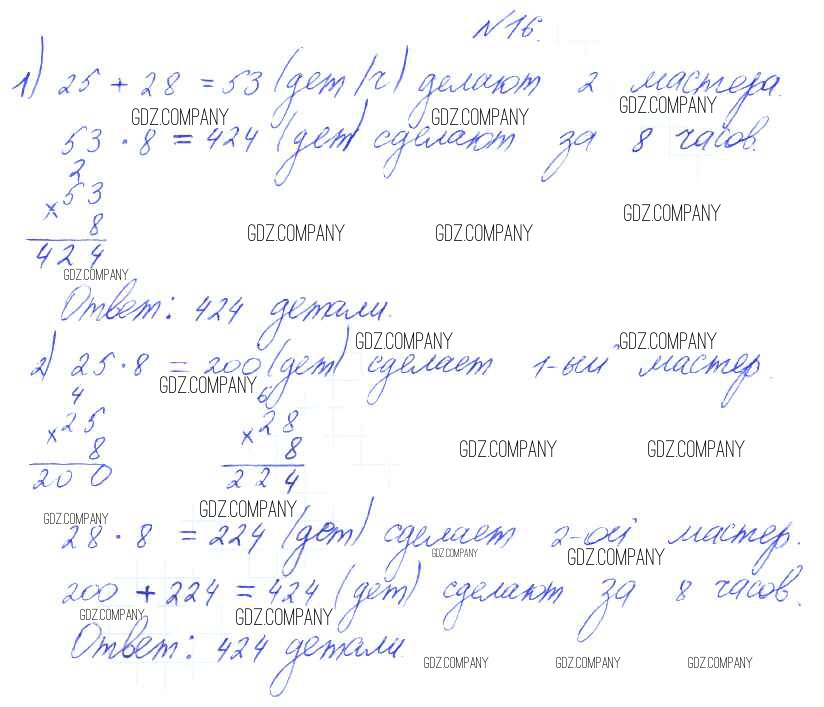 №16.
1) 25 + 28 = 53 (дет/ч) делают 2 мастера.
GDZ.COMPANY GDZ.COMPANY GDZ.COMPANY
53 · 8 = 424 (дет) сделают за 8 часов.
2
× 53
8
424
GDZ.COMPANY GDZ.COMPANY GDZ.COMPANY
GDZ.COMPANY
Ответ: 424 детали.
GDZ.COMPANY GDZ.COMPANY
2) 25 · 8 = 200 (дет) сделает 1-ый мастер.
GDZ.COMPANY
4 6
× 25 × 28
8 8
200 224
GDZ.COMPANY GDZ.COMPANY
GDZ.COMPANY GDZ.COMPANY
28 · 8 = 224 (дет) сделает 2-ой мастер.
GDZ.COMPANY GDZ.COMPANY
200 + 224 = 424 (дет) сделают за 8 часов.
GDZ.COMPANY GDZ.COMPANY
Ответ: 424 детали.
GDZ.COMPANY GDZ.COMPANY GDZ.COMPANY